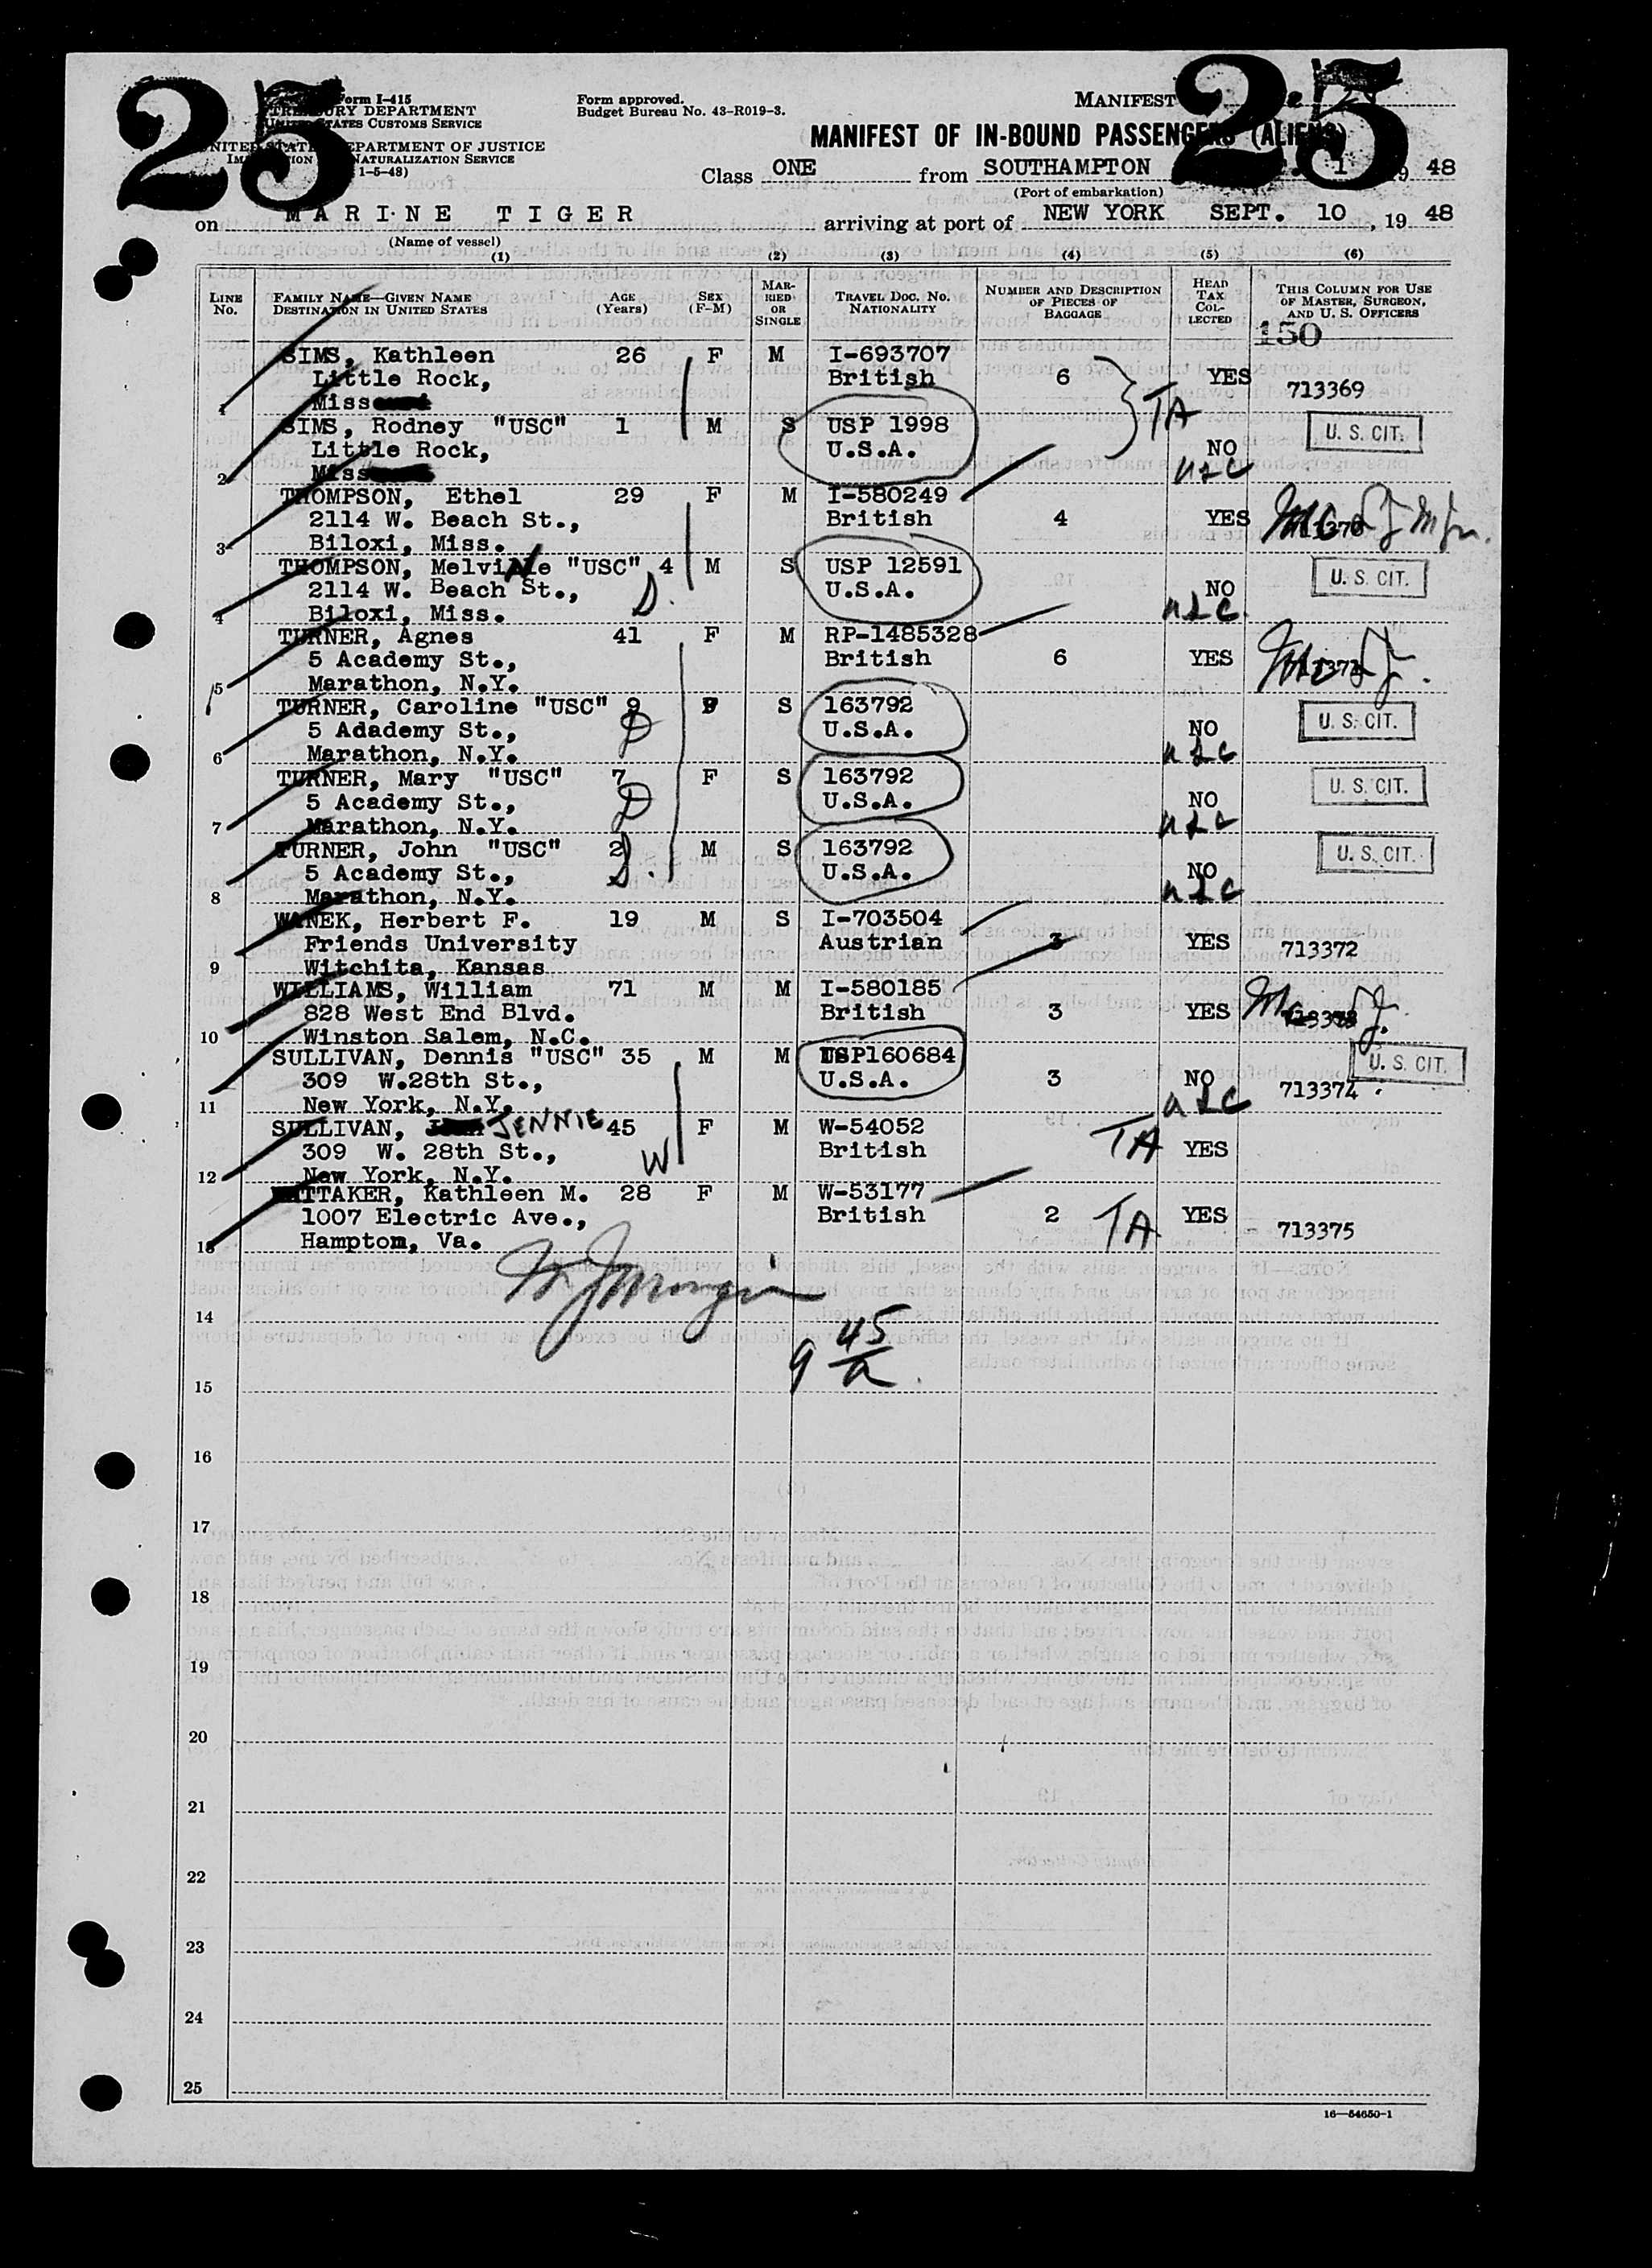 25
25
Form I-415
TREASURY DEPARTMENT
UNITED STATES CUSTOMS SERVICE
UNITED STATES DEPARTMENT OF JUSTICE
IMMIGRATION AND NATURALIZATION SERVICE
1-5-48)
Form approved.
Budget Bureau No. 43-R019-3.
MANIFEST
MANIFEST OF IN-BOUND PASSENGERS (ALIENS)
Class ONE from SOUTHAMPTON 1 19 48
(Port of embarkation)
on MARINE TIGER arriving at port of NEW YORK SEPT. 10, 19 48
(Name of vessel)
(1) (2) (3) (4) (5) (6)
LINE No. FAMILY NAME—GIVEN NAME DESTINATION IN UNITED STATES AGE (Years) SEX (F-M) MARRIED OR SINGLE TRAVEL DOC. No. NATIONALITY NUMBER AND DESCRIPTION OF PIECES OF BAGGAGE HEAD TAX COLLECTED THIS COLUMN FOR USE OF MASTER, SURGEON, AND U. S. OFFICERS
150
SIMS, Kathleen 26 F M I-693707
Little Rock, British 6 YES 713369
1 Miss TA
SIMS, Rodney "USC" 1 M S USP 1998 U. S. CIT.
Little Rock, U.S.A. NO
2 Miss
THOMPSON, Ethel 29 F M I-580249
2114 W. Beach St., British 4 YES
3 Biloxi, Miss.
THOMPSON, Melville "USC" 4 M S USP 12591 U. S. CIT.
2114 W. Beach St., D. U.S.A. NO
4 Biloxi, Miss.
TURNER, Agnes 41 F M RP-1485328
5 Academy St., British 6 YES
5 Marathon, N.Y.
TURNER, Caroline "USC" 9 F S 163792 U. S. CIT.
5 Adademy St., D U.S.A. NO
6 Marathon, N.Y.
TURNER, Mary "USC" 7 F S 163792 U. S. CIT.
5 Academy St., D U.S.A. NO
7 Marathon, N.Y.
TURNER, John "USC" 2 M S 163792 U. S. CIT.
5 Academy St., D. U.S.A. NO
8 Marathon, N.Y.
WANEK, Herbert F. 19 M S I-703504
Friends University Austrian 3 YES 713372
9 Witchita, Kansas
WILLIAMS, William 71 M M I-580185
828 West End Blvd. British 3 YES
10 Winston Salem, N.C.
SULLIVAN, Dennis "USC" 35 M M USP160684 U. S. CIT.
309 W.28th St., U.S.A. 3 NO 713374
11 New York, N.Y.
SULLIVAN, JENNIE 45 F M W-54052 TA
309 W. 28th St., W British YES
12 New York, N.Y.
TTAKER, Kathleen M. 28 F M W-53177
1007 Electric Ave., British 2 TA YES 713375
13 Hampton, Va.
14
9 45/a
15
16
17
18
19
20
21
22
23
24
25
16—54650-1